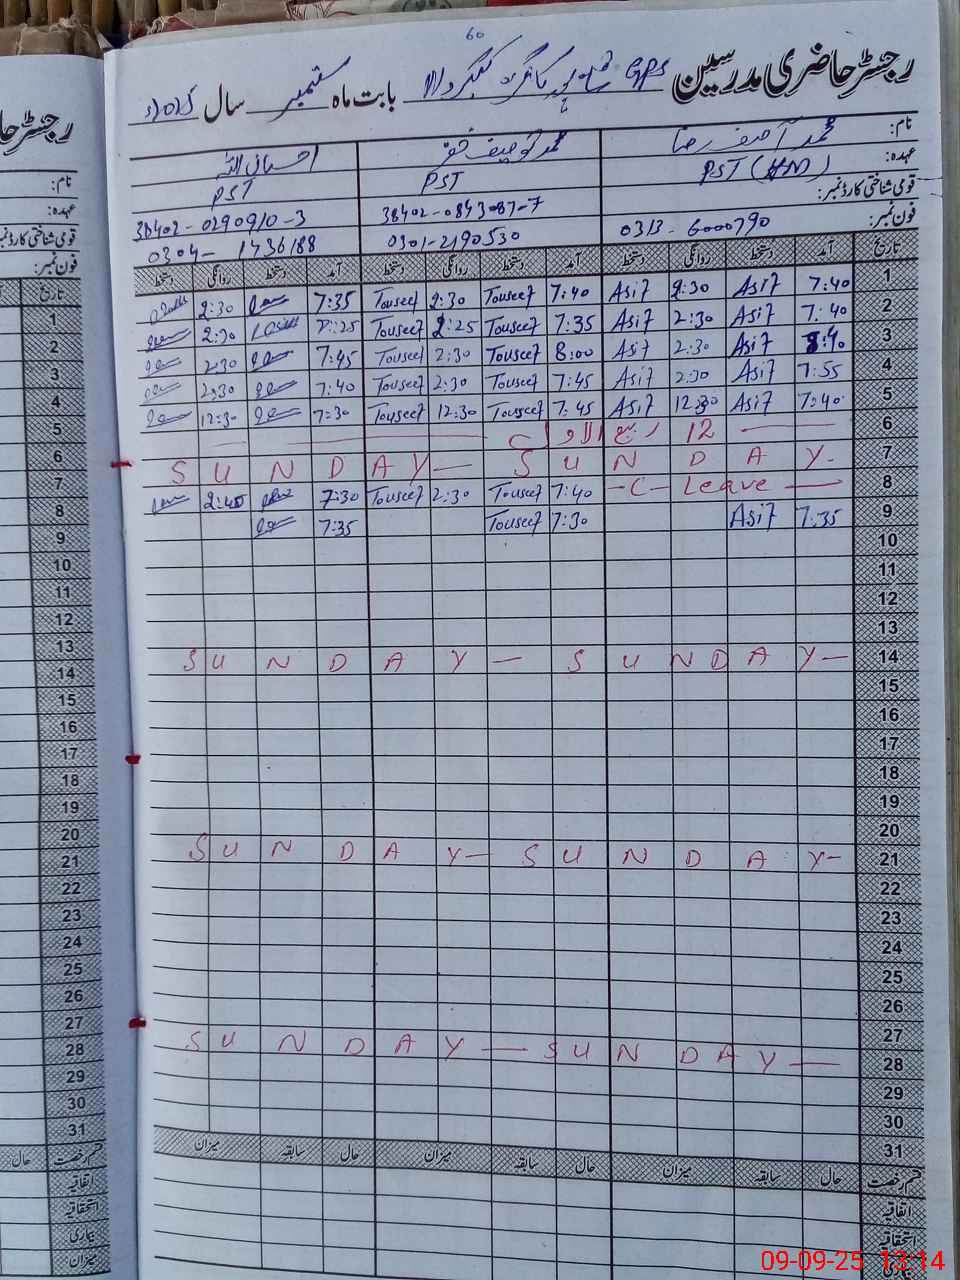 60
رجسٹر حاضری مدرسین GPS بابت ماہ ستمبر سال 2025
نام: محمد آصف رضا محمد توصیف ظفر احسان اللہ
عہدہ: PST (HM) PST PST
قومی شناختی کارڈ نمبر: 38402-0843087-7 38402-0290910-3
فون نمبر: 0313-6000790 0301-2190530 0304-1736188
تاریخ آمد دستخط روانگی دستخط آمد دستخط روانگی دستخط آمد دستخط روانگی دستخط
1 7:40 Asif 2:30 Asif 7:40 Touseef 2:30 Touseef 7:35 2:30
2 7:40 Asif 2:30 Asif 7:35 Touseef 2:25 Touseef 7:25 2:30
3 8:40 Asif 2:30 Asif 8:00 Touseef 2:30 Touseef 7:45 2:30
4 7:55 Asif 2:30 Asif 7:45 Touseef 2:30 Touseef 7:40 2:30
5 7:40 Asif 12:30 Asif 7:45 Touseef 12:30 Touseef 7:30 12:30
6 12 ربیع الاول
7 SUNDAY — SUNDAY -
8 -C- Leave — 7:40 Touseef 2:30 Touseef 7:30 2:40
9 7:35 Asif 7:30 Touseef 7:35
10
11
12
13
14 SUNDAY — SUNDAY —
15
16
17
18
19
20
21 SUNDAY — SUNDAY —
22
23
24
25
26
27
28 SUNDAY — SUNDAY —
29
30
31
قسم رخصت حال سابقہ میزان حال سابقہ میزان حال سابقہ میزان
اتفاقیہ
استحقاقیہ
بیماری
رجسٹر حا
نام:
عہدہ:
قومی شناختی کارڈ نمبر
فون نمبر:
تاریخ
1
2
3
4
5
6
7
8
9
10
11
12
13
14
15
16
17
18
19
20
21
22
23
24
25
26
27
28
29
30
31
قسم رخصت حال
اتفاقیہ
استحقاقیہ
بیماری
میزان
09-09-25 13:14